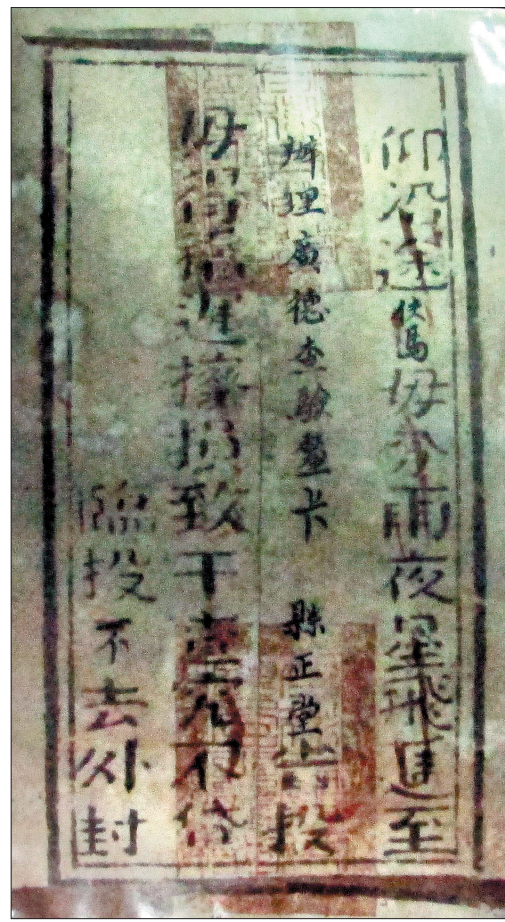 仰沿途伕馬毋分雨夜星飛遞至
辦理廣德查驗釐卡 縣正堂 投
毋得稽遲擦損致干查究不貸
臨投不去外封